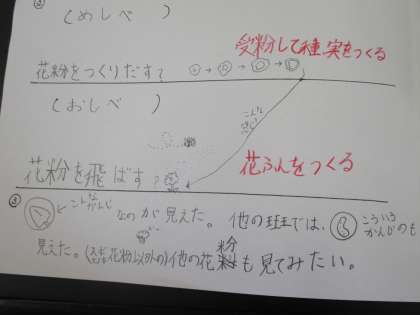 ②
(めしべ )
受粉して種、実をつくる
花粉をつくりだす?
(おしべ )
こんな感じ
花粉を飛ばす?
花ふんをつくる
③ こんなかんじ なのが見えた。他の班では、こういうかんじのも
見えた。( 花粉以外の)他の花粉も見てみたい。